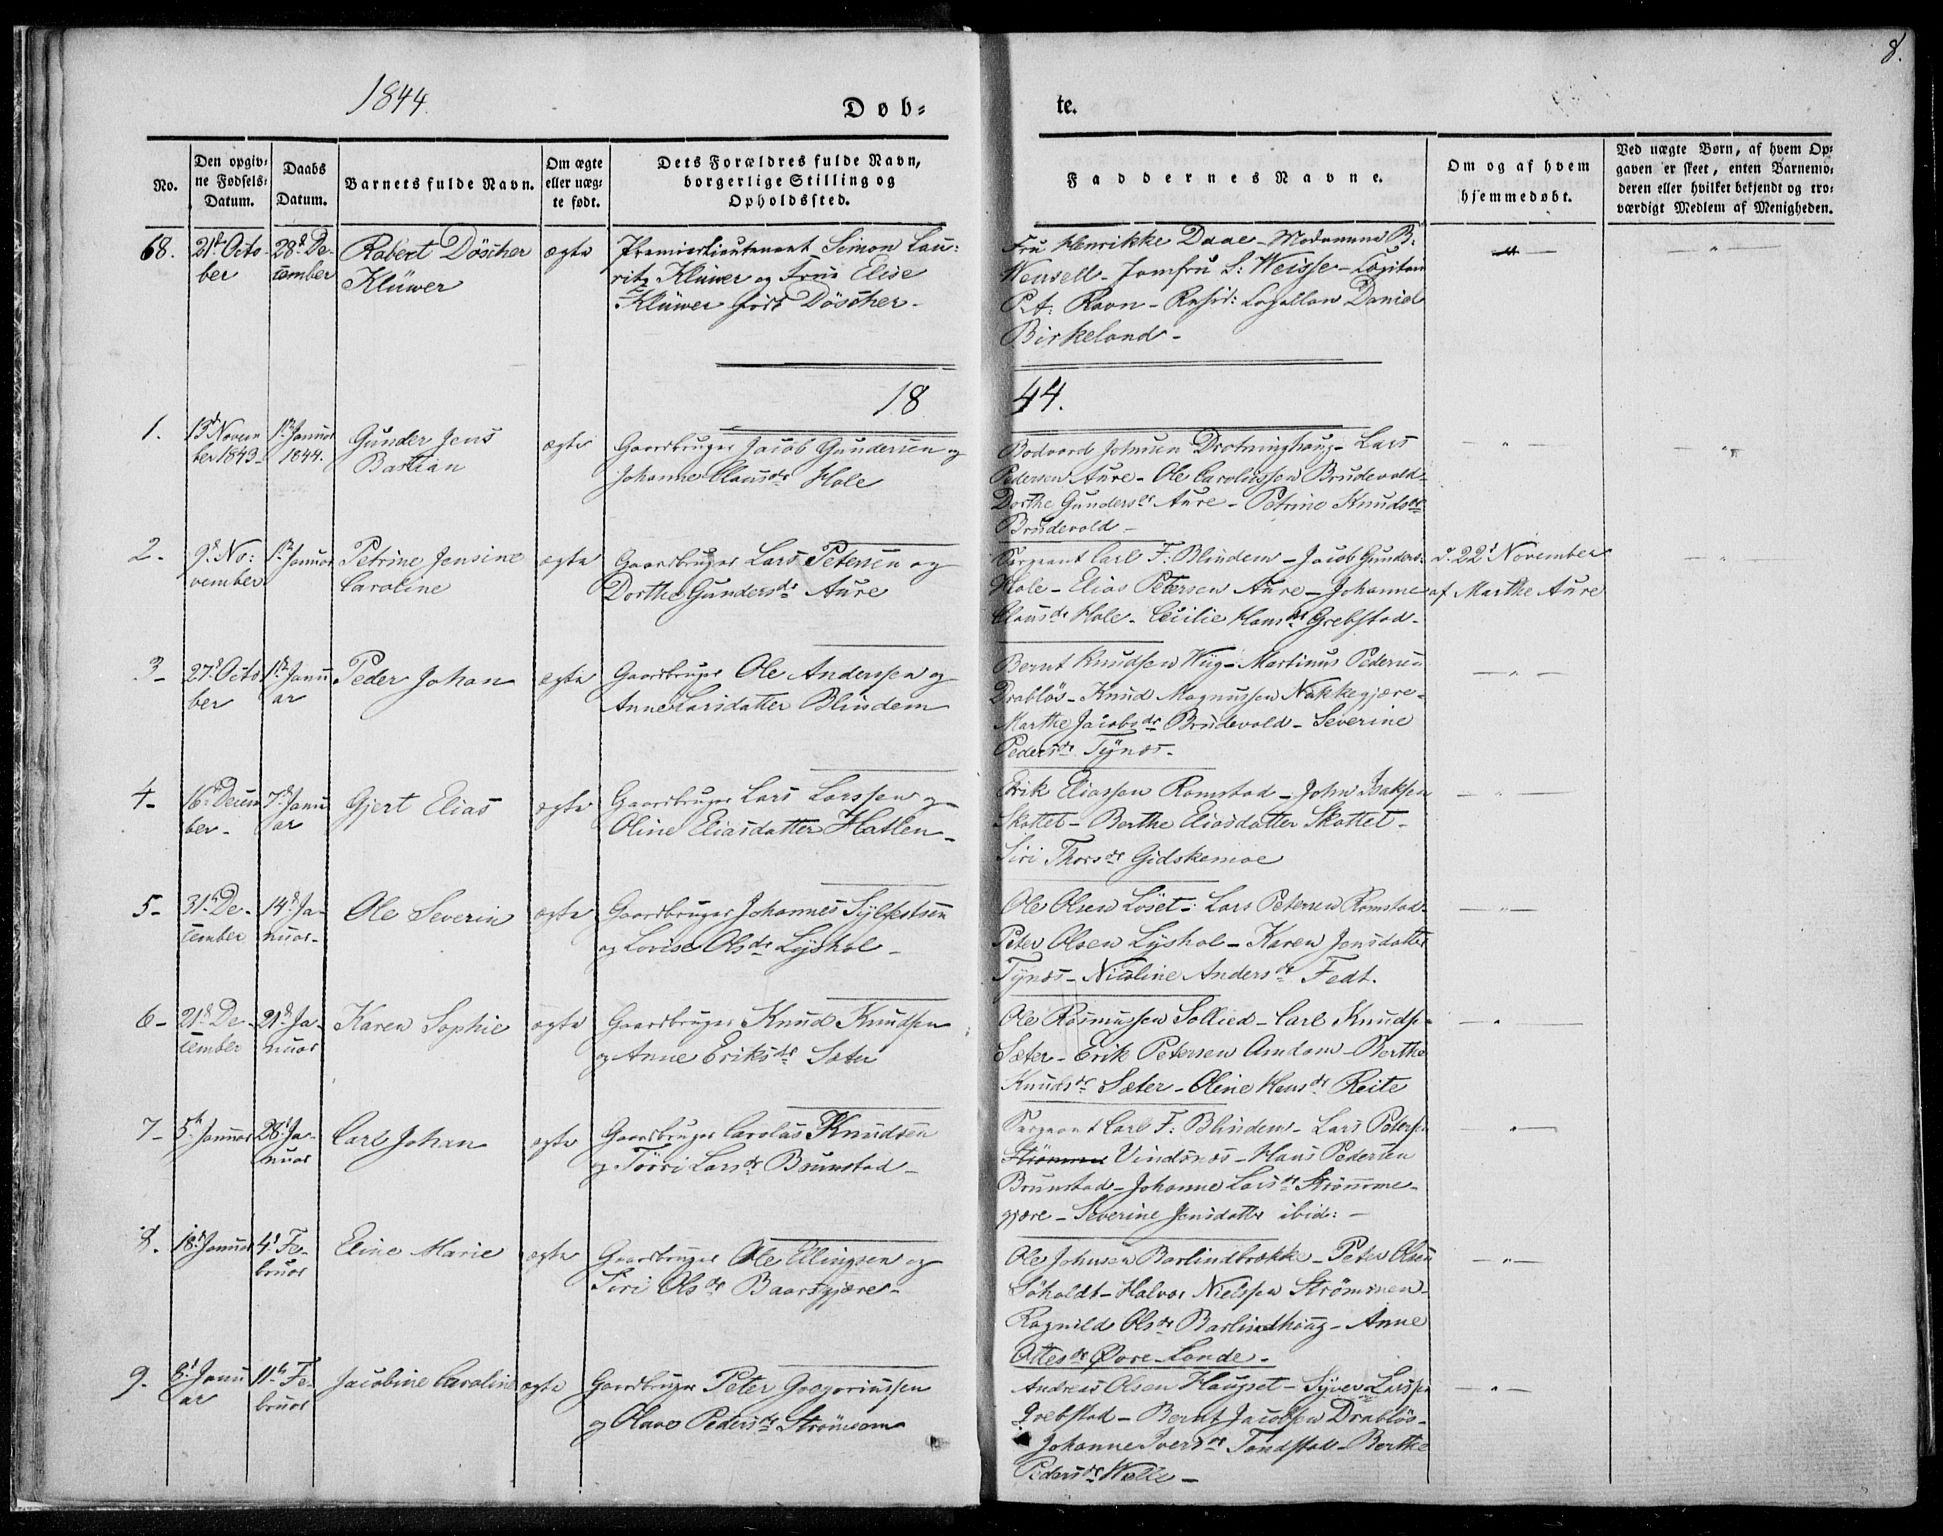 8.
1844.
Døb-
te.
No.
Den opgiv-
ne Fødsels-
Datum.
Daabs
Datum.
Barnets fulde Navn.
Om ægte
eller uæg-
te født.
Dets Forældres fulde Navn,
borgerlige Stilling og
Opholdssted.
Faddernes Navne.
Om og af hvem
hjemmedøbt.
Ved uægte Børn, af hvem Op-
gaven er skeet, enten Barnemo-
deren eller hvilket bekjendt og tro-
værdigt Medlem af Menigheden.
68.
21d Octo
ber
28d De-
cember
Robert Döscher
Klüwer
ægte
Premierlieutenant Simon Lau-
ritz Klüwer og Frue Elise
Klüwer født Döscher-
Fru Henrikke Daae - Madamme B:
Wensell - Jomfru S: Weisse - Capitain
Pet: Ravn - Resid: Capellan Daniel
Birkeland -
18
44.
1.
13d Novem
ber 1843-
1ste Januar
1844.
Gunder Jens
Bastian
ægte
Gaardbruger Jacob Gundersen og
Johanne Clausdr Hole
Bodvard Johnsen Drotninghaug - Lars
Pedersen Aure - Ole Carolussen Brudevold-
Dorthe Gundersdr Aure - Petrine Knudsdr
Brudevold -
2-
9d No:
vember
1ste Januar
Petrine Jensine
Caroline
ægte
Gaardbruger Lars Petersen og
Dorthe Gundersdr Aure
Sergeant Carl F: Blindem - Jacob Gunders:
Hole - Elias Petersen Aure - Johanne
Clausdr Hole - Cecilie Hansdr Grebstad-
d. 22d November
af Marthe Aure
3-
27d Octo
ber
1ste Janu
ar
Peder Johan
ægte
Gaardbruger Ole Anderssen og
Anne Larsdatter Blindem
Bernt Knudsen Wiig - Martinus Pedersen
Drabløs - Knud Magnussen Nakkegjære-
Marthe Jacobsdr Brudevold - Severine
Pedersdr Tynes -
4-
16d Decem
ber -
7d Janu
ar
Gjert Elias
ægte
Gaardbruger Lars Larssen og
Oline Eliasdatter Hatlen -
Erik Eliassen Ramstad - John Isaksen
Skottet - Berthe Eliasdatter Skottet -
Siri Thorsdr Gidskemoe
5-
31te De-
cember
14d Ja-
nuar-
Ole Severin
ægte
Gaardbruger Johannes Sylfestsen
og Lovise Olsdr Lyshol -
Ole Olsen Løset - Lars Petersen Romstad-
Peter Olsen Lyshol - Karen Jensdatter
Tynes - Nicoline Andersdr Fedt.
6-
21d De-
cember
21d Ja-
nuar
Karen Sophie
ægte
Gaardbruger Knud Knudsen
og Anne Eriksdr Sæter
Ole Rasmussen Sollied - Carl Knuds-
Sæter - Erik Petersen Amdam - Berthe
Knudsdr Sæter - Oline Hansdr Reite
7-
5te Januar
28d Ja-
nuar
Carl Johan
ægte
Gaardbruger Carolus Knudsen
og Torri Larsdr Brunstad -
Sergeant Carl F: Blindem - Lars Peters-
Strømme Vindsnes - Hans Pedersen
Brunstad - Johanne Larsdr Strømme-
gjære - Severine Jensdatter ibid: -
8.
18d Januar
4d Fe-
bruar
Eline Marie
ægte
Gaardbruger Ole Ellingsen og
Siri Olsdr Baarsgjære -
Ole Johnsen Barlindbrække - Peter Olsen
Søholdt - Halvor Nielsen Strømmen-
Ragnild Olsdr Barlindhaug - Anne
Ottesdr Øvre-Lande -
9.
8d Janu
ar
11te Fe-
bruar
Jacobine Caroline
ægte
Gaardbruger Peter Gregoriussen
og Olave Pedersdr Strømmen
Andreas Olsen Haugset - Syver Larssen
Grebstad - Bernt Jacobsen Drabløs-
Johanne Iversdr Tandstad - Berthe
Pedersdr Welle -